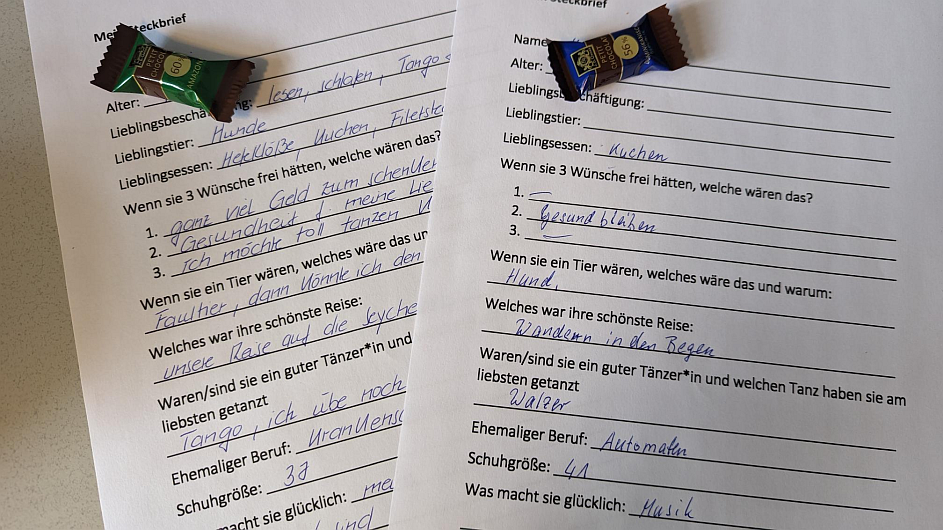 Steckbrief
Alter:
lesen, schlafen, Tango
Lieblingstier: Hunde
Lieblingsessen: Kuchen, Filetste
Wenn sie 3 Wünsche frei hätten, welche wären das?
1. ganz viel Geld zum schenken
2. Gesundheit f meine Lie
3. ich möchte toll tanzen
Wenn sie ein Tier wären, welches wäre das un
Faultier, dann könnte ich den
Welches war ihre schönste Reise:
unsere Reise auf die Seyche
Waren/sind sie ein guter Tänzer*in und
liebsten getanzt
Tango, ich übe noch
Ehemaliger Beruf: Krankensc
Schuhgröße: 37
macht sie glücklich: me
ind
PETIT
CHOCOL
60%
AMAZON
teckbrief
Name
Alter:
Lieblingsb chäftigung:
Lieblingstier:
Lieblingsessen: Kuchen
Wenn sie 3 Wünsche frei hätten, welche wären das?
1. —
2. Gesund bleiben
3. —
Wenn sie ein Tier wären, welches wäre das und warum:
Hund,
Welches war ihre schönste Reise:
Wandern in den Bergen
Waren/sind sie ein guter Tänzer*in und welchen Tanz haben sie am
liebsten getanzt
Walzer
Ehemaliger Beruf: Automaten
Schuhgröße: 41
Was macht sie glücklich: Musik
PETIT
CHOCOLAT
56%